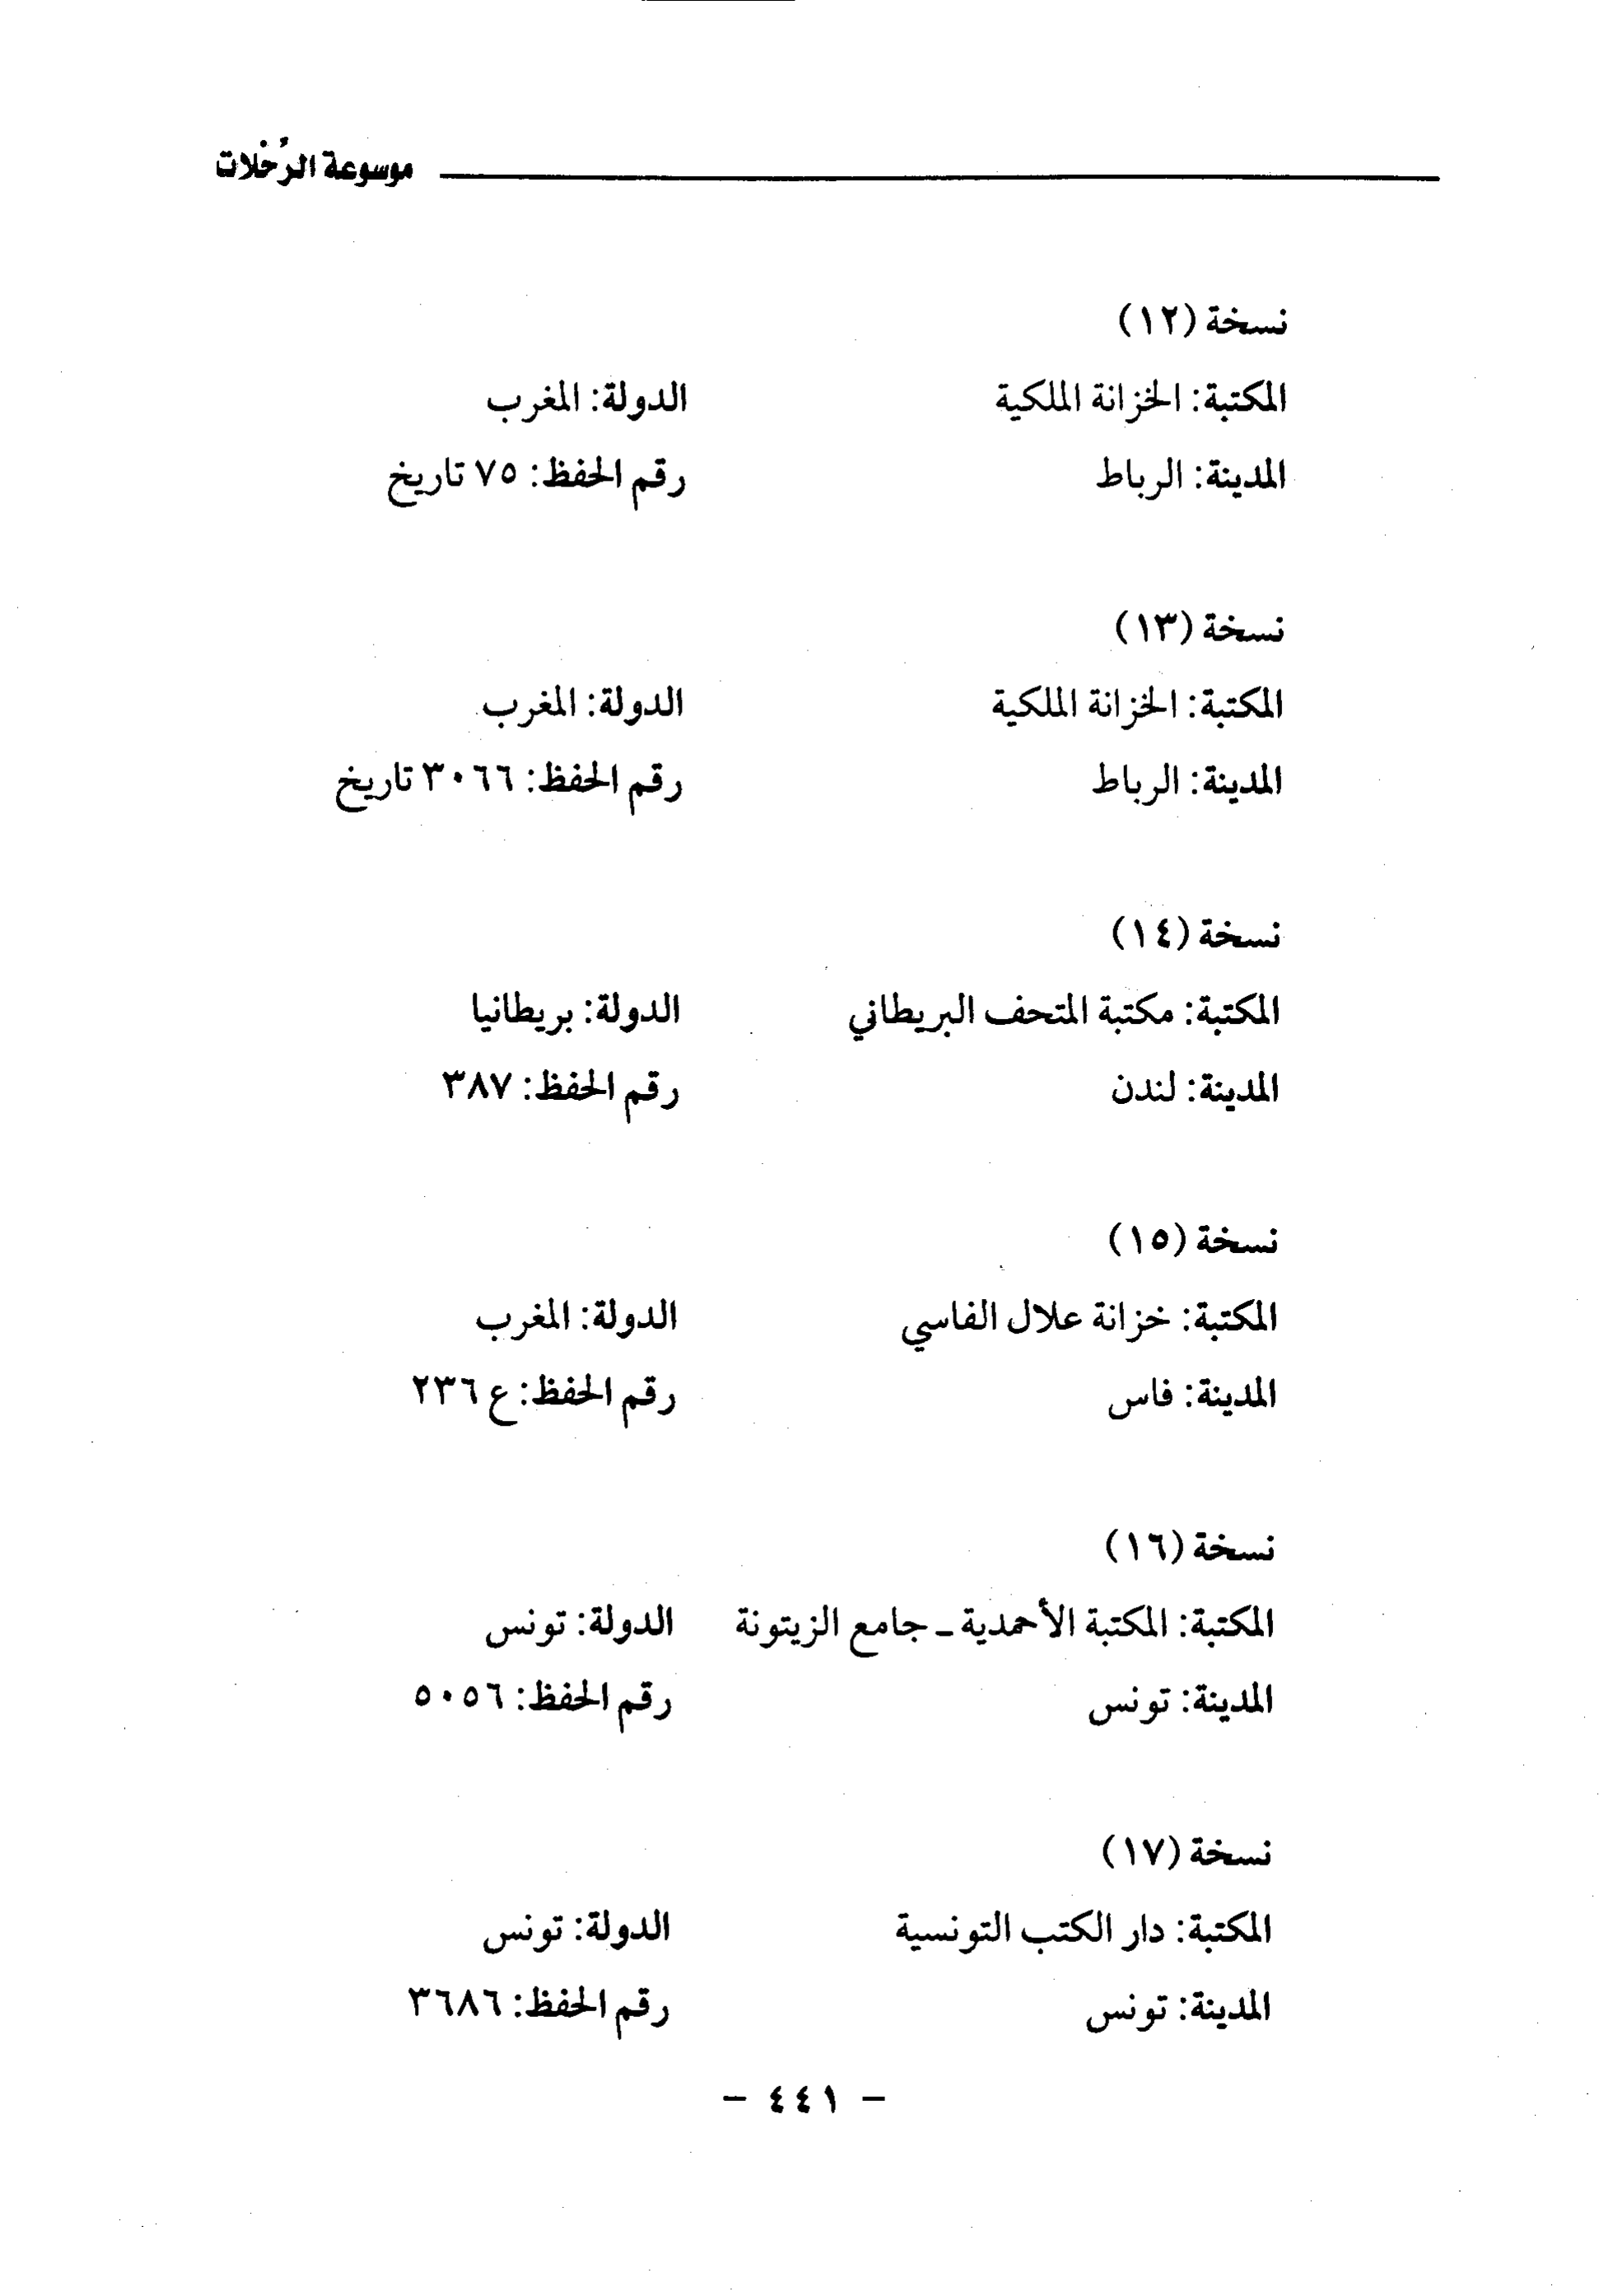 موسوعة الرّحلات
نسخة (١٢)
المكتبة: الخزانة الملكية الدولة: المغرب
المدينة: الرباط رقم الحفظ: ٧٥ تاريخ
نسخة (١٣)
المكتبة: الخزانة الملكية الدولة: المغرب
المدينة: الرباط رقم الحفظ: ٣٠٦٦ تاريخ
نسخة (١٤)
المكتبة: مكتبة المتحف البريطاني الدولة: بريطانيا
المدينة: لندن رقم الحفظ: ٣٨٧
نسخة (١٥)
المكتبة: خزانة علال الفاسي الدولة: المغرب
المدينة: فاس رقم الحفظ: ع ٢٣٦
نسخة (١٦)
المكتبة: المكتبة الأحمدية ـ جامع الزيتونة الدولة: تونس
المدينة: تونس رقم الحفظ: ٥٠٥٦
نسخة (١٧)
المكتبة: دار الكتب التونسية الدولة: تونس
المدينة: تونس رقم الحفظ: ٣٦٨٦
- ٤٤١ -